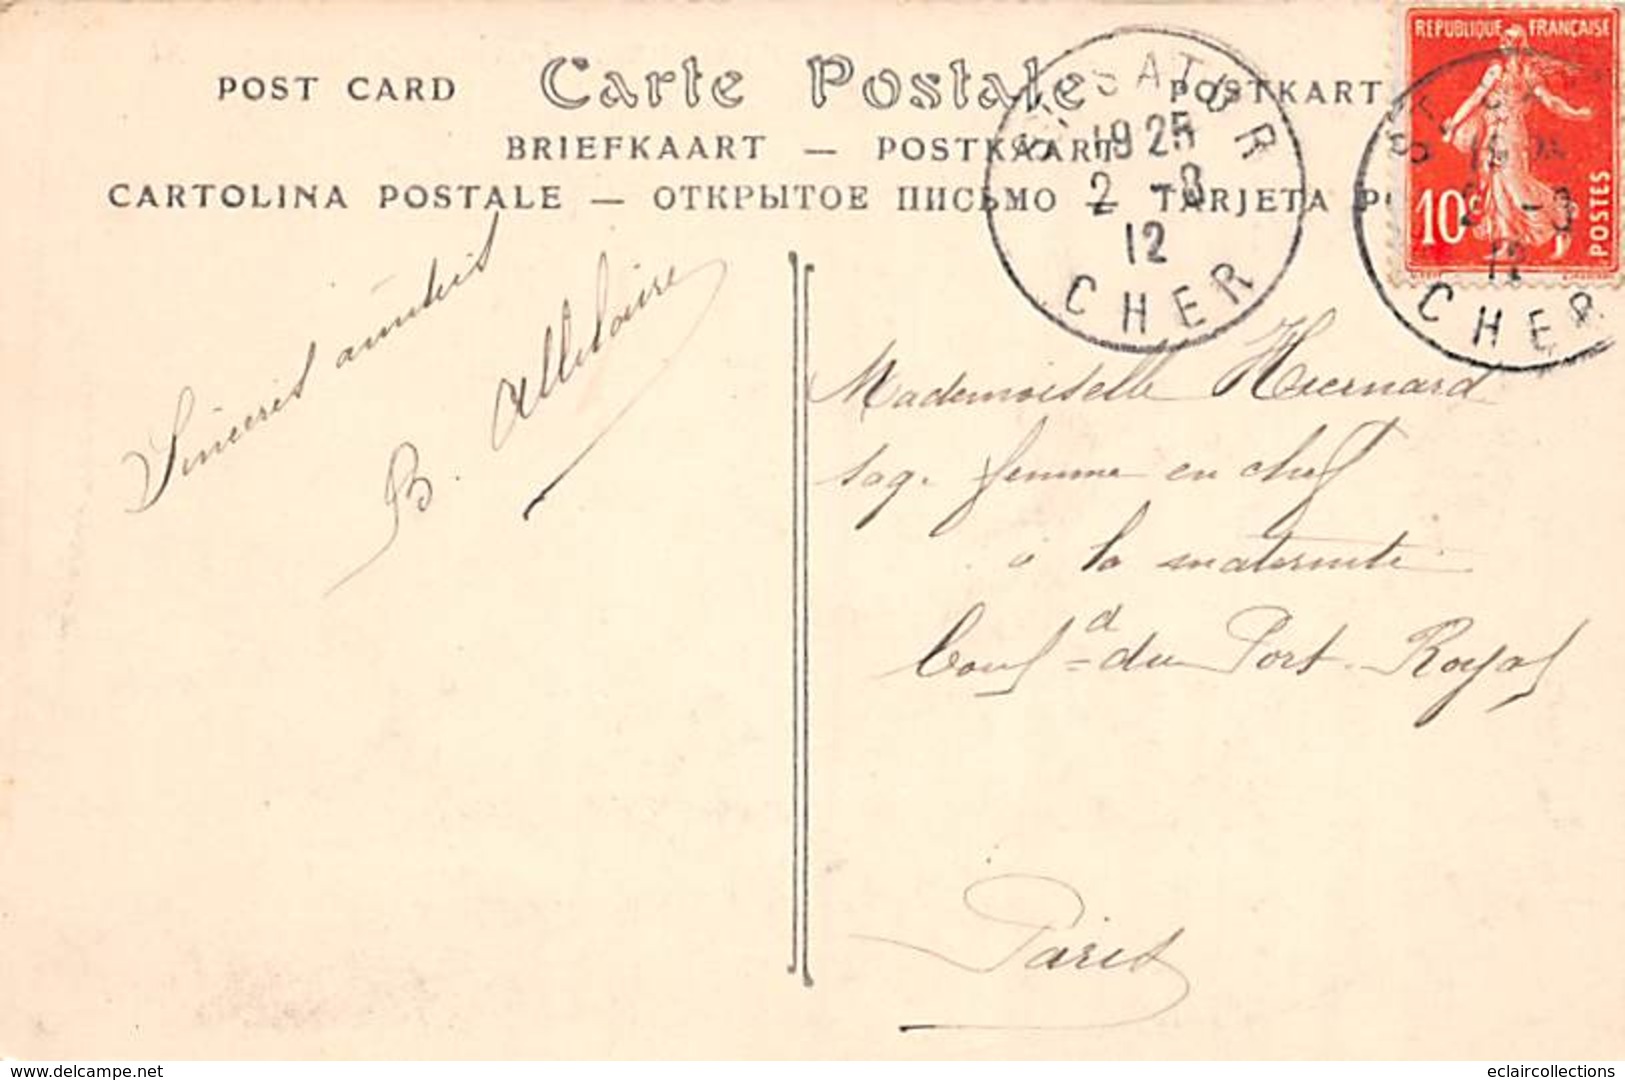 POST CARD Carte Postale POSTKART
BRIEFKAART — POSTKAART
CARTOLINA POSTALE — ОТКРЫТОЕ ПИСЬМО — TARJETA P
REPUBLIQUE FRANÇAISE
10c
POSTES
ST SATUR
1925
2 -8
12
CHER
CHER
Sincères amitiés
B.
Mademoiselle
sag. femme en chef
à la maternité
Bould du Port-Royal
Paris
delcampe.net
eclaircollections